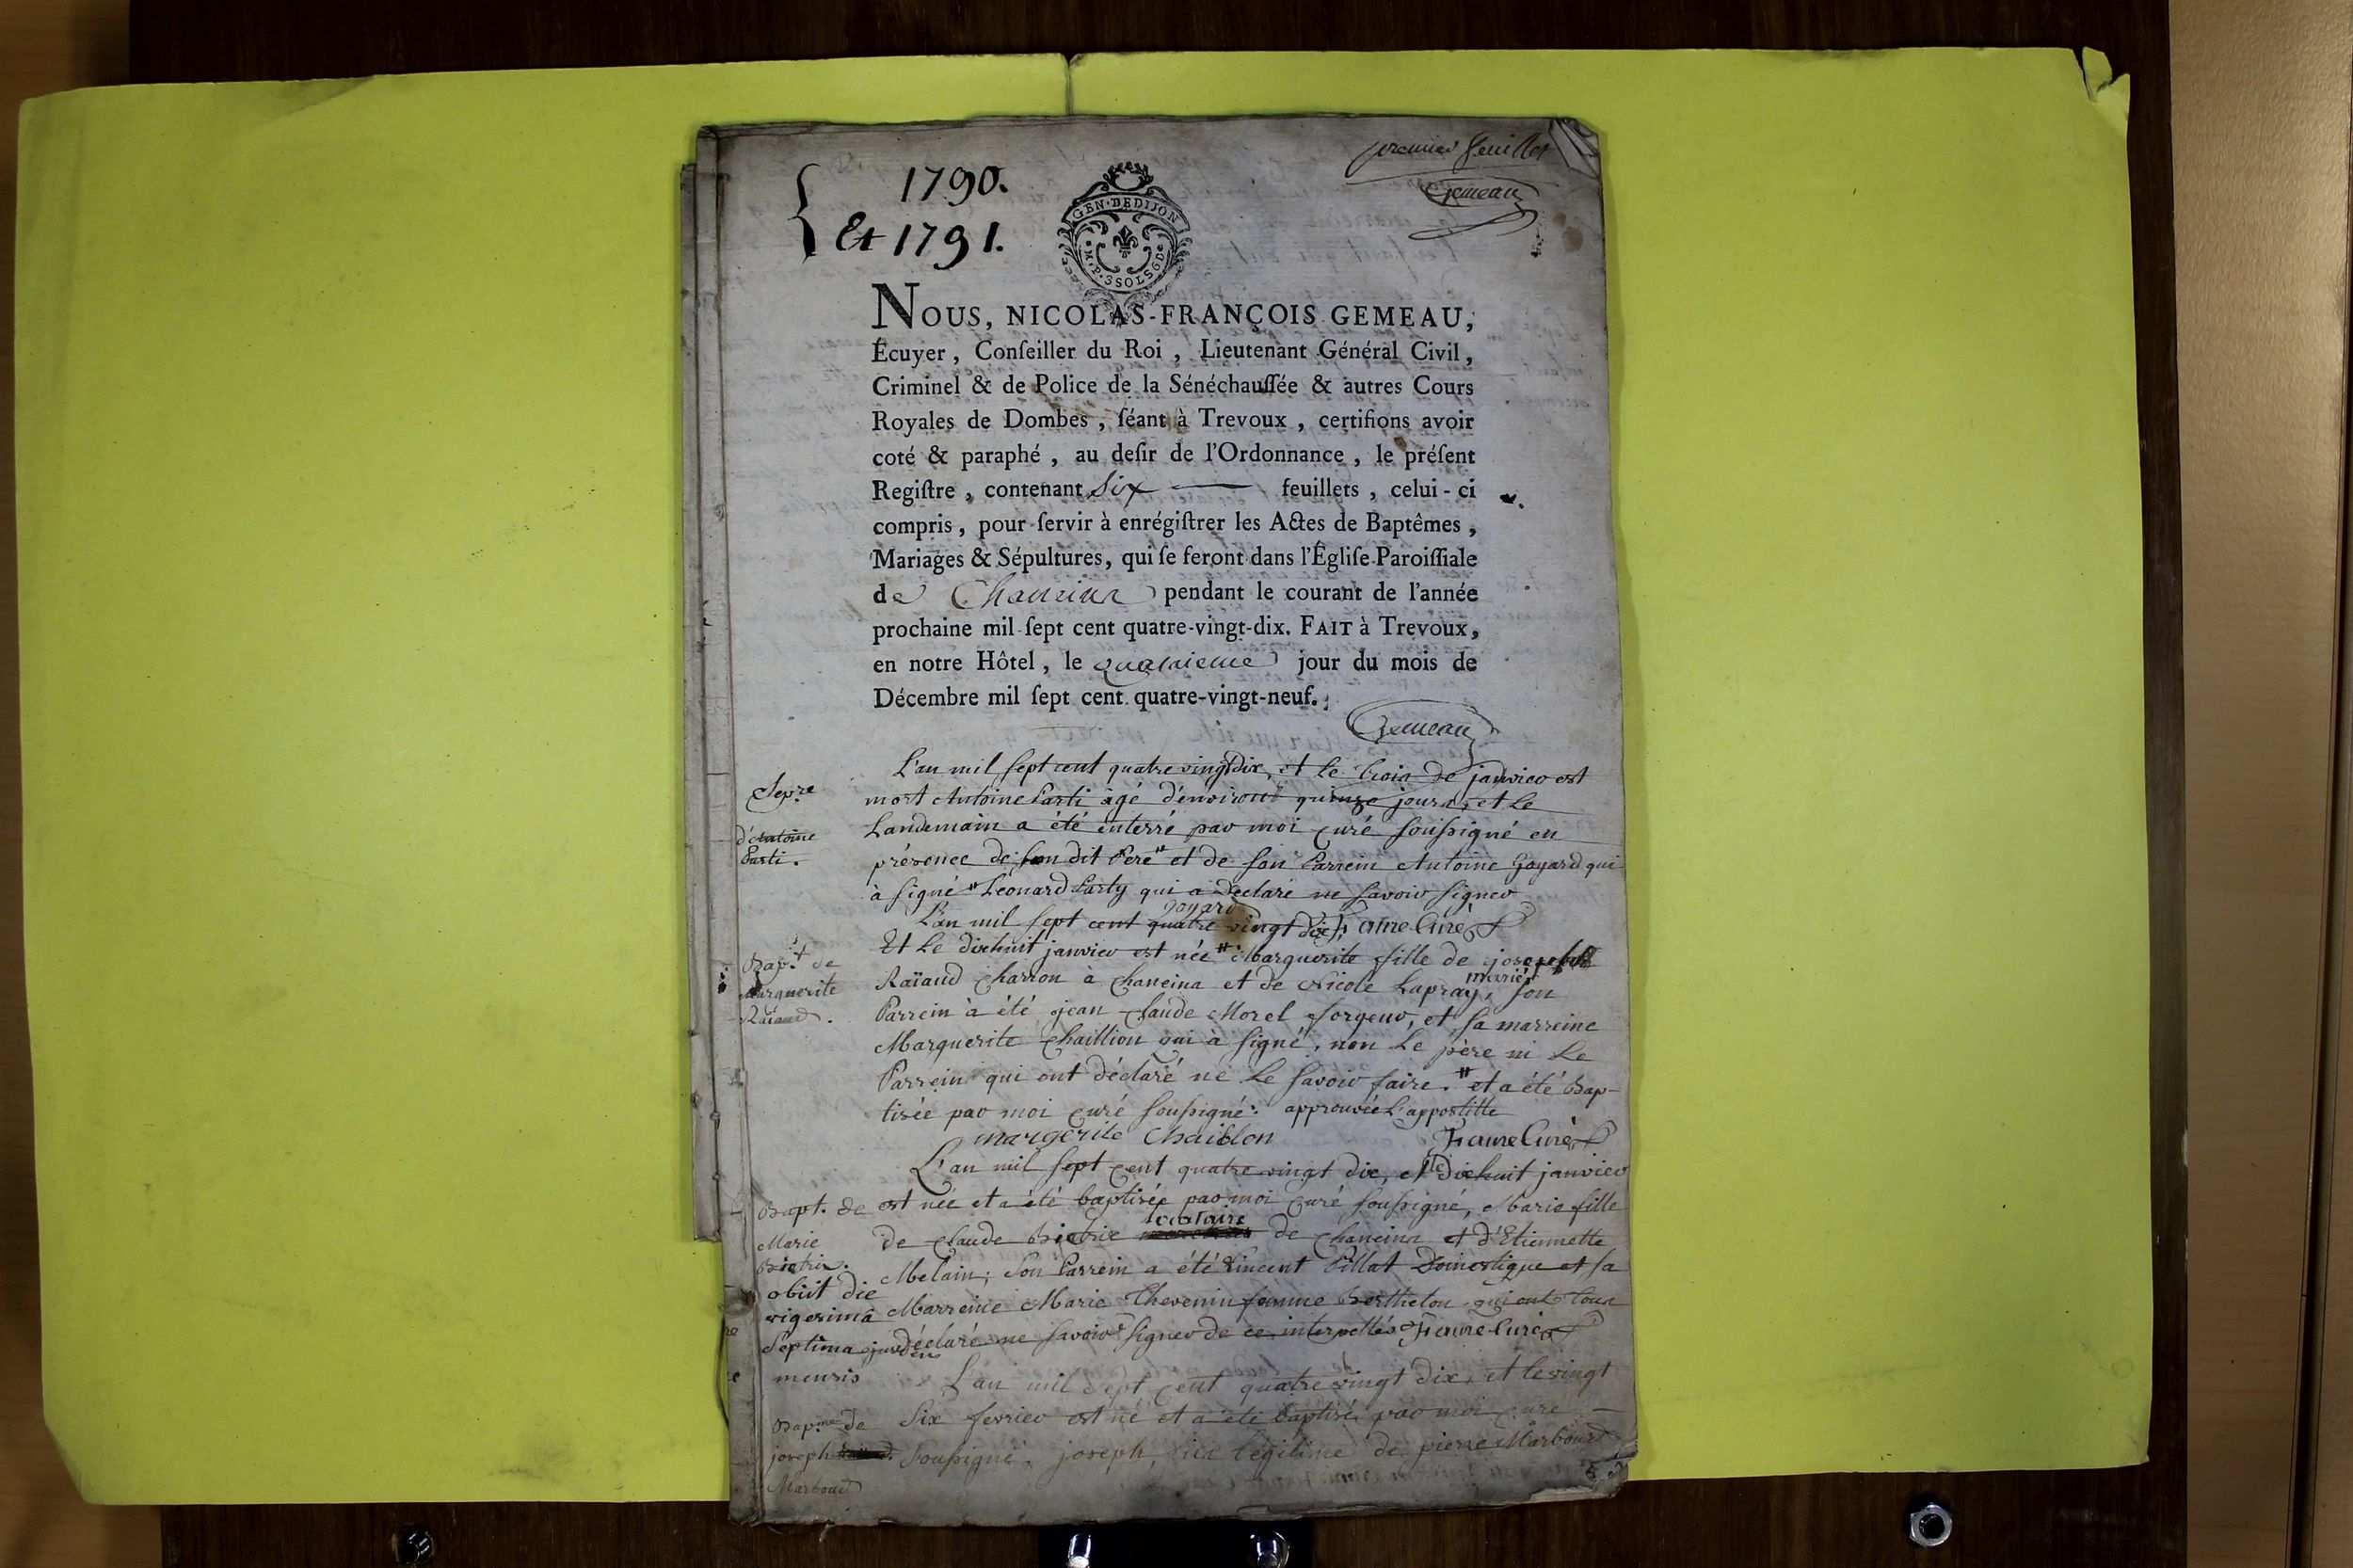 premier feuillet
Gemeau
1790.
& 1791.
GEN·DEDIJON
M·P·3SOLS6D
NOUS, NICOLAS-FRANÇOIS GEMEAU,
Écuyer, Conſeiller du Roi, Lieutenant Général Civil,
Criminel & de Police de la Sénéchauſſée & autres Cours
Royales de Dombes, ſéant à Trevoux, certifions avoir
coté & paraphé, au deſir de l'Ordonnance, le préſent
Regiſtre, contenant Six feuillets, celui-ci
compris, pour ſervir à enrégiſtrer les Actes de Baptêmes,
Mariages & Sépultures, qui ſe feront dans l'Égliſe Paroiſſiale
de Chaneins pendant le courant de l'année
prochaine mil ſept cent quatre-vingt-dix. FAIT à Trevoux,
en notre Hôtel, le quatrieme jour du mois de
Décembre mil ſept cent quatre-vingt-neuf.
Gemeau
L'an mil sept cent quatre vingt dix, et le trois de janvier est
Sepre
mort Antoine Parti âgé d'environ quinze jours, et le
d'Antoine
Landemain a été enterré par moi curé soussigné en
Parti.
présence de son dit Pere # et de son Parrein Antoine Goyard qui
à signé # Léonard Party qui a déclaré ne savoir signer
goyard
L'an mil sept cent quatre vingt dix, Faure Curé
Et le dixhuit janvier est née # Marguerite fille de joseph
Bapt. de
Marguerite
Raïaud.
Raïaud charron à chaneins et de Nicole Lapray, mariés, son
Parrein à été jean claude Morel forgeur, et sa marreine
Marguerite Chaillion qui à signé, non le père ni le
Parrein qui ont déclaré ne le savoir faire. # et a été Bap-
tisée par moi curé soussigné. approuvée L'appostille
margerite Chaiblon Faure Curé
L'an mil sept cent quatre vingt dix, et le dixhuit janvier
Bapt. de
est née et a été baptisée par moi curé soussigné, Marie fille
Marie
Bietrix.
de claude Bietrix locataire de chaneins et d'Etiennette
Melain; Son Parrein a été Vincent Pillat Domestique et sa
obiit die
vigesimâ
Marreine Marie Thevenin femme Berthelon qui ont tous
Septima
déclaré ne savoir signer de ce interpellés Faure Curé
mensis
L'an mil sept cent quatre vingt dix, et le vingt
Bapme de
Six fevrier est né et a été baptisé par moi curé
joseph
soussigné, joseph, fils légitime de pierre Marboud
Marboud